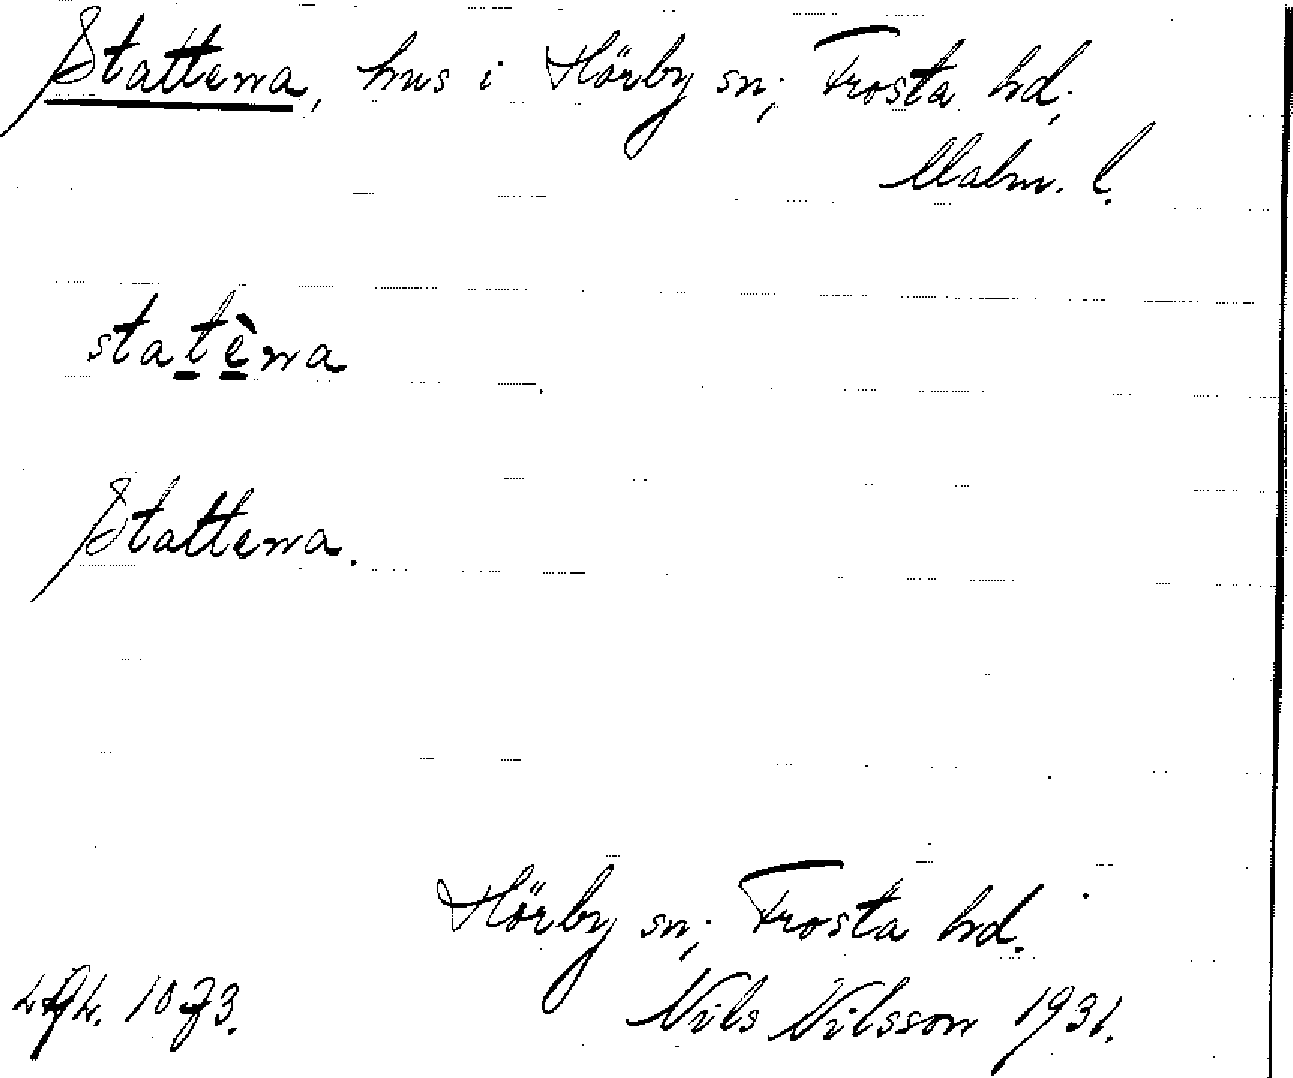 Stattena, hus i Hörby sn; Frosta hd;
Malm. l.
statèna
Stattena.
Hörby sn; Frosta hd.
Nils Nilsson 1931.
1073.